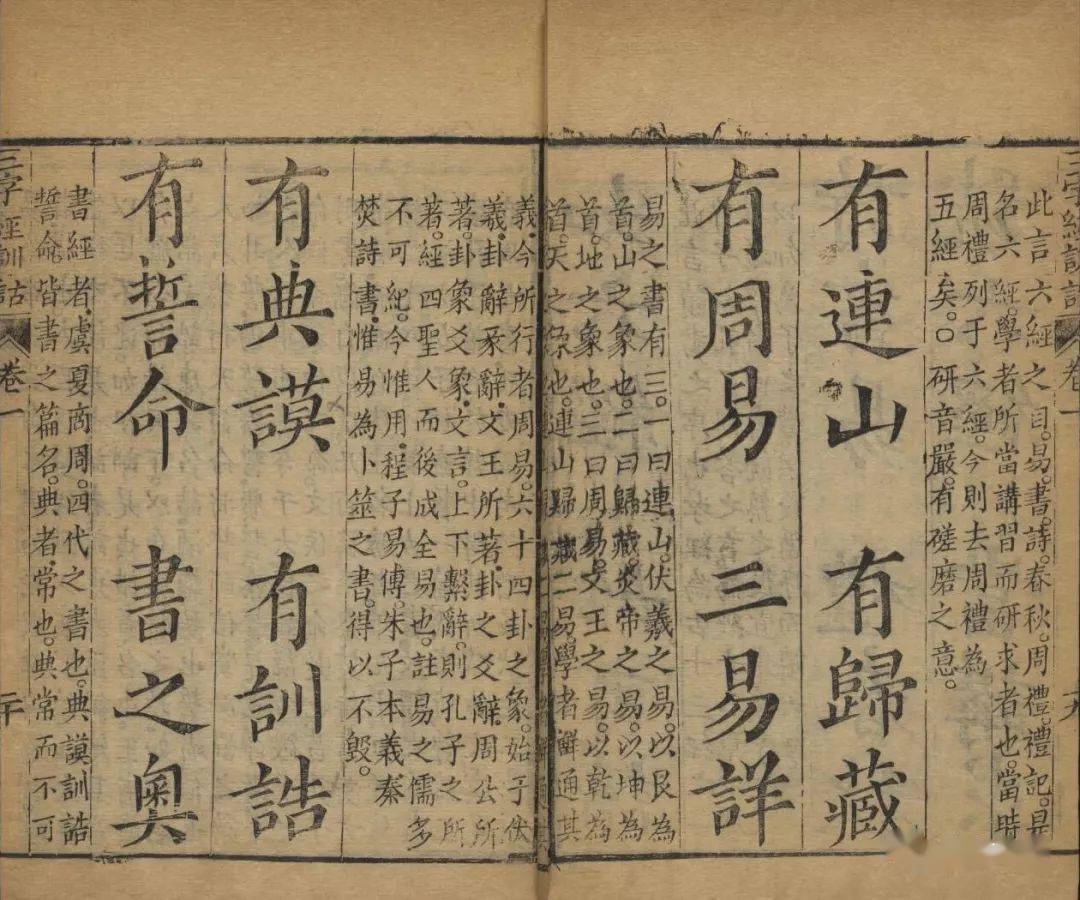 三字經訓詁 卷一
此言六經之目。易。書。詩。春秋。周禮。禮記。是
名六經。學者所當講習而研求者也。當時
周禮列于六經。今則去周禮為
五經矣。○研音嚴。有磋磨之意。
有連山 有歸藏
有周易 三易詳
易之書有三。一曰連山。伏羲之易。以艮為
首。山之象也。二曰歸藏。炎帝之易。以坤為
首。地之象也。三曰周易。文王之易。以乾為
首。天之象也。連山歸藏二易。學者鮮通其
義。今所行者周易。六十四卦之象。始于伏
羲。卦辭彖辭。文王所著。卦之爻辭周公所
著。卦象爻象。文言。上下繫辭。則孔子之所
著。經四聖人而後成全易也。註易之儒多
不可紀。今惟用。程子易傳。朱子本義秦
焚詩書。惟易為卜筮之書。得以不毀。
有典謨 有訓誥
有誓命 書之奧
書經者。虞夏商周。四代之書也。典謨訓誥
誓命。皆書之篇名。典者常也。典常而不可
三字經訓詁 卷一 二十